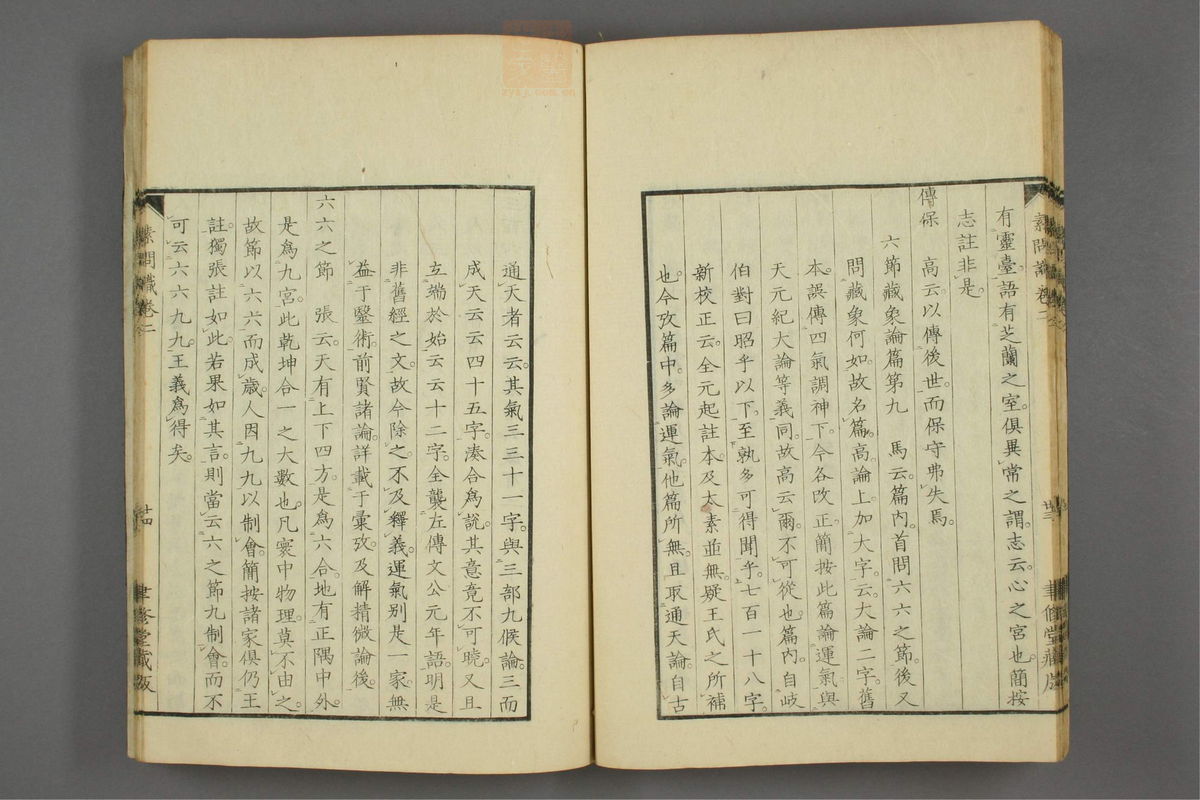 素問識卷二
有靈臺語有芝蘭之室俱異常之謂志云心之宮也簡按
志註非是
傳保 高云以傳後世而保守弗失焉
六節藏象論篇第九 馬云篇內首問六六之節後又
問藏象何如故名篇高論上加大字云大論二字舊
本誤傳四氣調神下今各改正簡按此篇論運氣與
天元紀大論等義同故高云爾不可從也篇內自岐
伯對曰昭乎以下至孰多可得聞乎七百一十八字
新校正云全元起註本及太素並無疑王氏之所補
也今攷篇中多論運氣他篇所無且取通天論自古
廿三
聿修堂藏版
通天者云云其氣三三十一字與三部九候論三而
成天云云四十五字湊合為說其意竟不可曉又且
立端於始云云十二字全襲左傳文公元年語明是
非舊經之文故今除之不及釋義運氣別是一家無
益于醫術前賢諸論詳載于彙攷及解精微論後
六六之節 張云天有上下四方是爲六合地有正隅中外
是爲九宮此乾坤合一之大數也凡寰中物理莫不由之
故節以六六而成歲人因九九以制會簡按諸家俱仍王
註獨張註如此若果如其言則當云六之節九制會而不
可云六六九九王義爲得矣
素問識卷二
廿四
聿修堂藏版